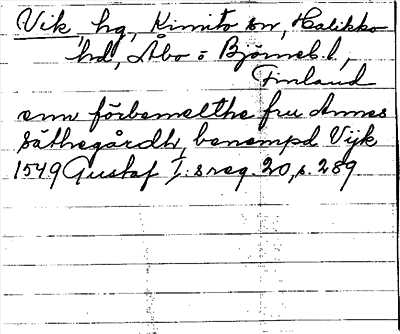 Vik, hg, Kimito sn, Halikko
hd, Åbo = Björneb. l,
Finland
enn förbemelthe fru Annes
säthegårdh, benempd Vijk
1549 Gustaf I:s reg. 20, s. 289